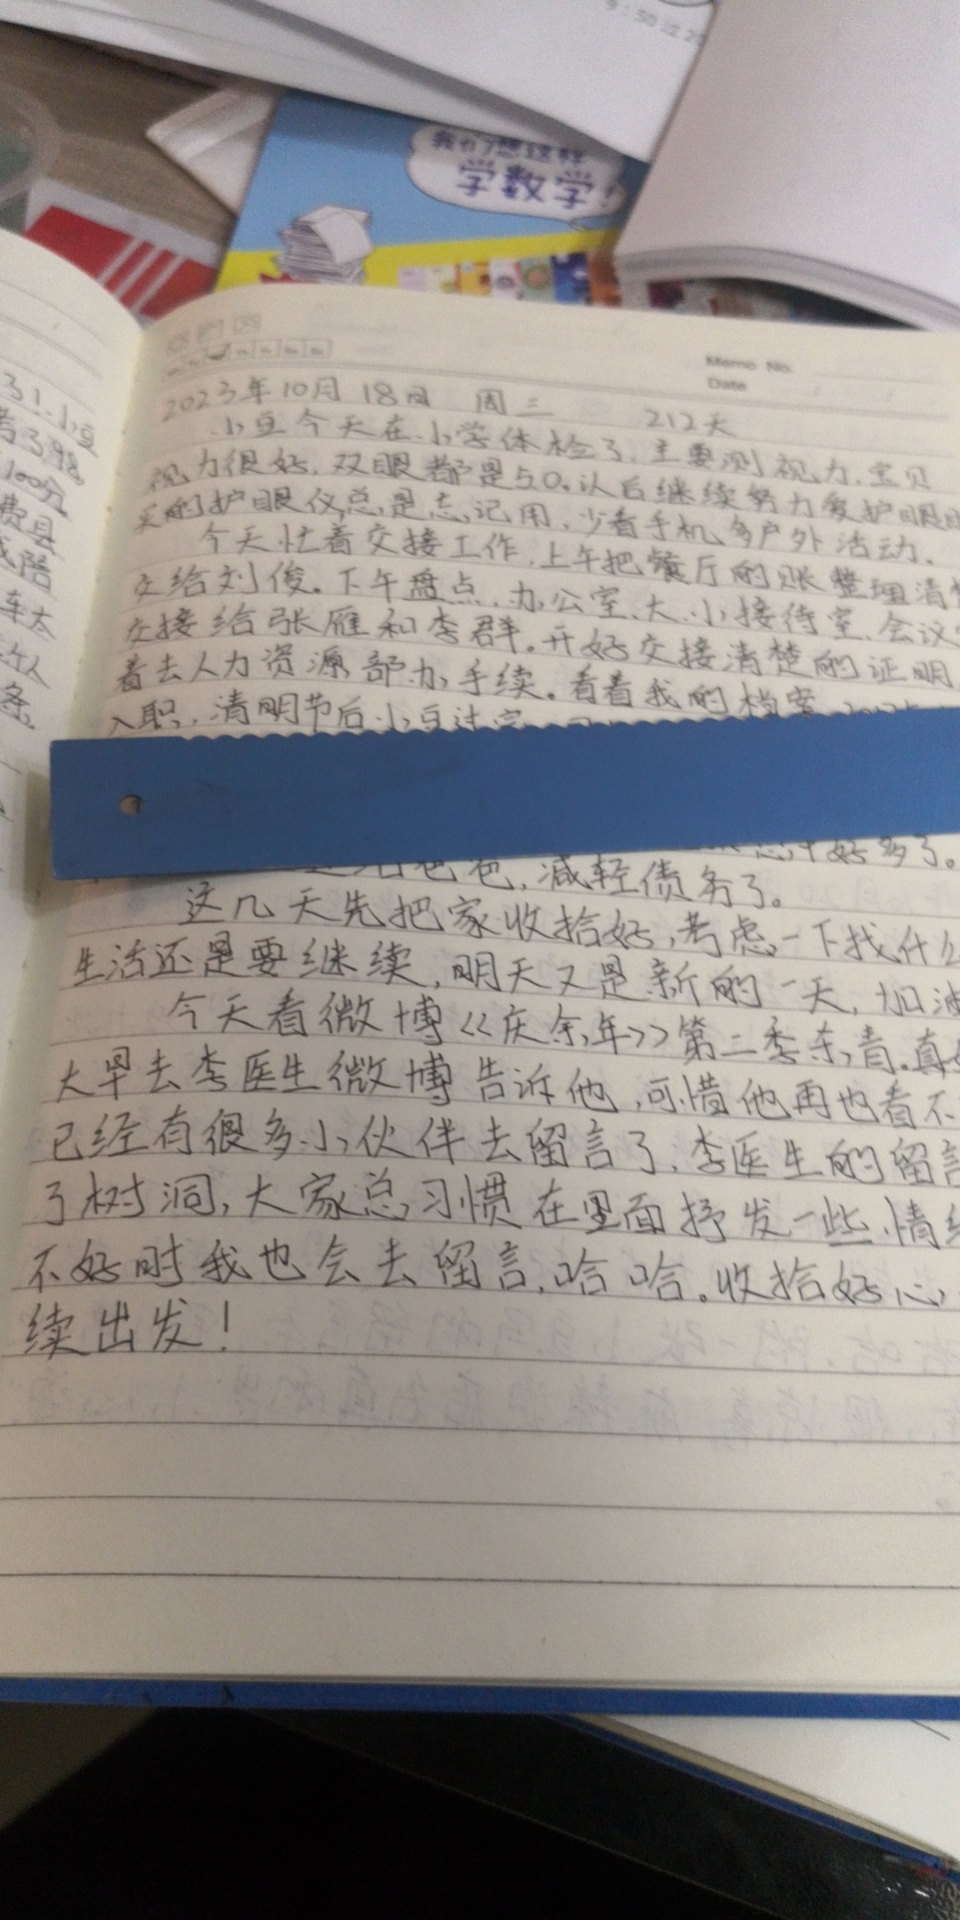 9:50过2
我们想这样
学数学!
Memo No.
Date
2023年10月18日 周三 212天
小豆今天在小学体检了,主要测视力,宝贝
视力很好,双眼都是5.0。以后继续努力爱护眼
买的护眼仪总是忘记用,少看手机,多户外活动。
今天忙着交接工作,上午把餐厅的账整理清
交给刘俊。下午盘点,办公室、大、小接待室、会议
交接给张雁和李群。开好交接清楚的证明,
着去人力资源部办手续。看着我的档案,
入职,清明节后小豆过完
好多了。
减轻债务了。
这几天先把家收拾好,考虑一下找什么
生活还是要继续,明天又是新的一天,加油
今天看微博《庆余年》第二季杀青.真
大早去李医生微博告诉他,可惜他再也看不
已经有很多小伙伴去留言了,李医生的留言
了树洞,大家总习惯在里面抒发一些情
不好时我也会去留言,哈哈。收拾好心
续出发!
小豆
100分
费县
陪
车太